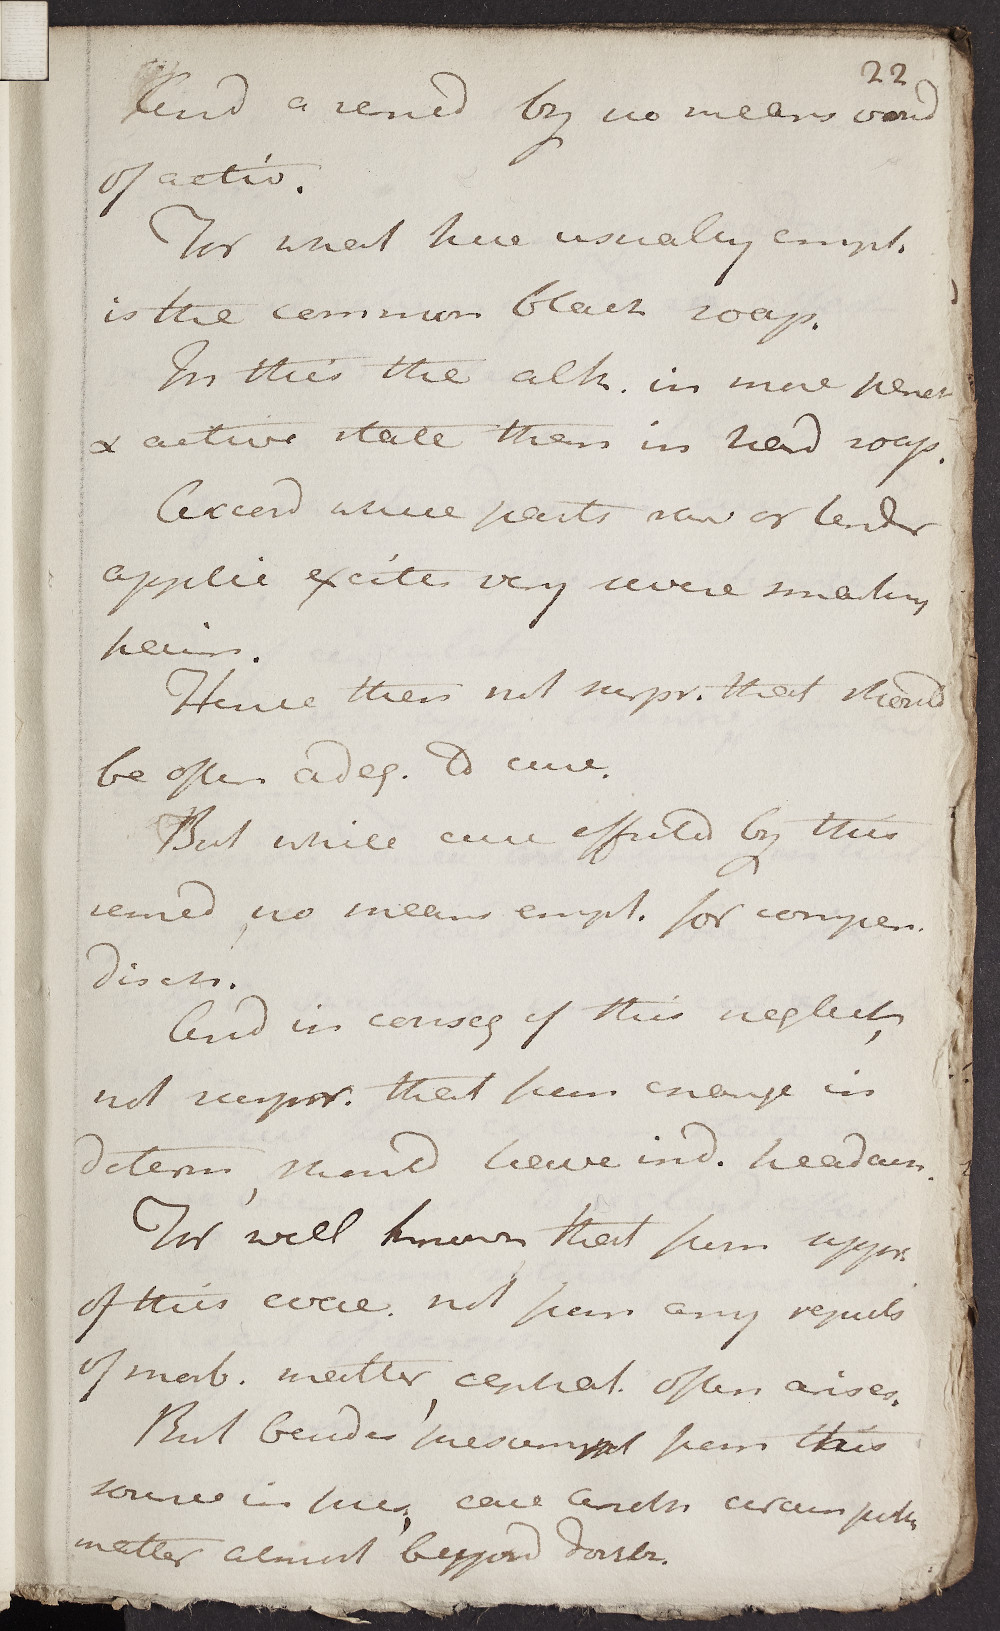 22
And a remed by no means void
of activ.
For what here usually empl.
is the common black soap.
In this the alk. in more penet
& active state than in hard soap.
Accord where parts raw or tender
applic excites very severe smarting
pain.
Hence then not surpr. that should
be often adeq. to cure.
But while cure effected by this
remed, no means empl. for compen.
disch.
And in conseq of this neglect,
not surpr. that from change in
determ, should have ind. headach.
For well known that from suppr.
of this evac. not from any repuls
of morb. matter, cephal. often arises.
But besides presumpt from this
source in pres, case anoth circum puts
matter almost beyond doubt.